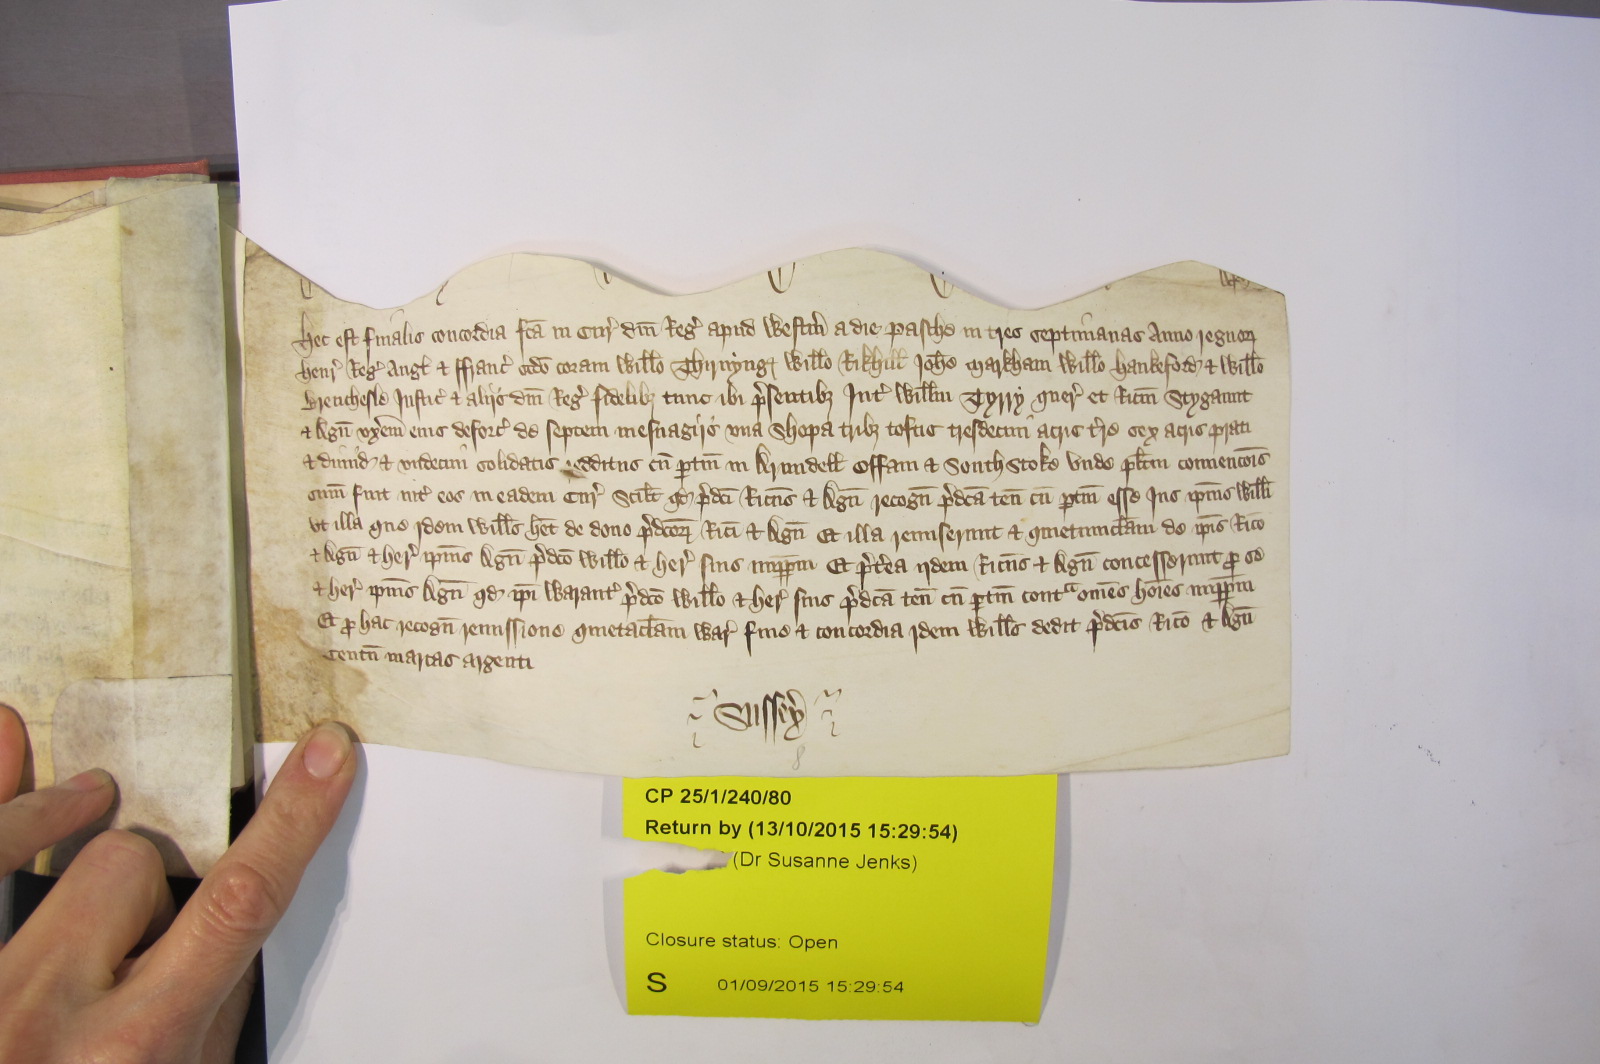 Hec est finalis concordia fcā in Cur̉ dn̄i Reg̉ apud Westm̄ a die Pasche in tres septimanas Anno regnoꝝ
Henr̉ Reg̉ Angl̉ & ffranc̉ ocđo coram Willo Thirnyng Willo Rikhill Joh̄e Markham Willo Hankeford & Willo
Brenchesle Justic̉ & alijs dn̄i Reg̉ fidelibꝫ tunc ibi p̄sentibꝫ Int̉ Willm̄ Tyrry quer̉ et Ricm̄ Stygannt
& Agn̄ vxem̄ eius deforc̉ de septem mesuagijs vna Shopa tribꝫ toftis tresdecim acris t̉re sex acris prati
& dimid & vndecim solidatis redditus cū ptin̄ in Arundell Offam & South Stoke Vnde pl̄itm conuenc̄ois
sum̄ fuit int̉ eos in eadem Cur̉ Scil̄t qđ p̄dc̄i Ricūs & Agn̄ recogn̄ p̄dc̄a ten̄ cū ptin̄ esse Jus ip̄ius Willi
vt illa que idem Will̄s h̄et de dono p̄dc̄oꝝ Rici & Agn̄ Et illa remiserunt & quietumclam̄ de ip̄is Rico
& Agn̄ & her̉ ip̄ius Agn̄ p̄dc̄o Willo & her̉ suis imp̄pm̄ Et p̄t̉ea ijdem Ricūs & Agn̄ concesserunt ꝓ se
& her̉ ip̄ius Agn̄ qđ ip̄i Warant̉ p̄dc̄o Willo & her̉ suis p̄dc̄a ten̄ cū ptin̄ contᵃ om̄es hoīes imp̄pm̄
Et ꝓ hac recogn̄ remissione quietaclam̄ War̉ fine & concordia idem Will̄s dedit p̄dc̄is Rico & Agn̄
centū marcas argenti
Sussex̉
8
CP 25/1/240/80
Return by (13/10/2015 15:29:54)
(Dr Susanne Jenks)
Closure status: Open
S 01/09/2015 15:29:54